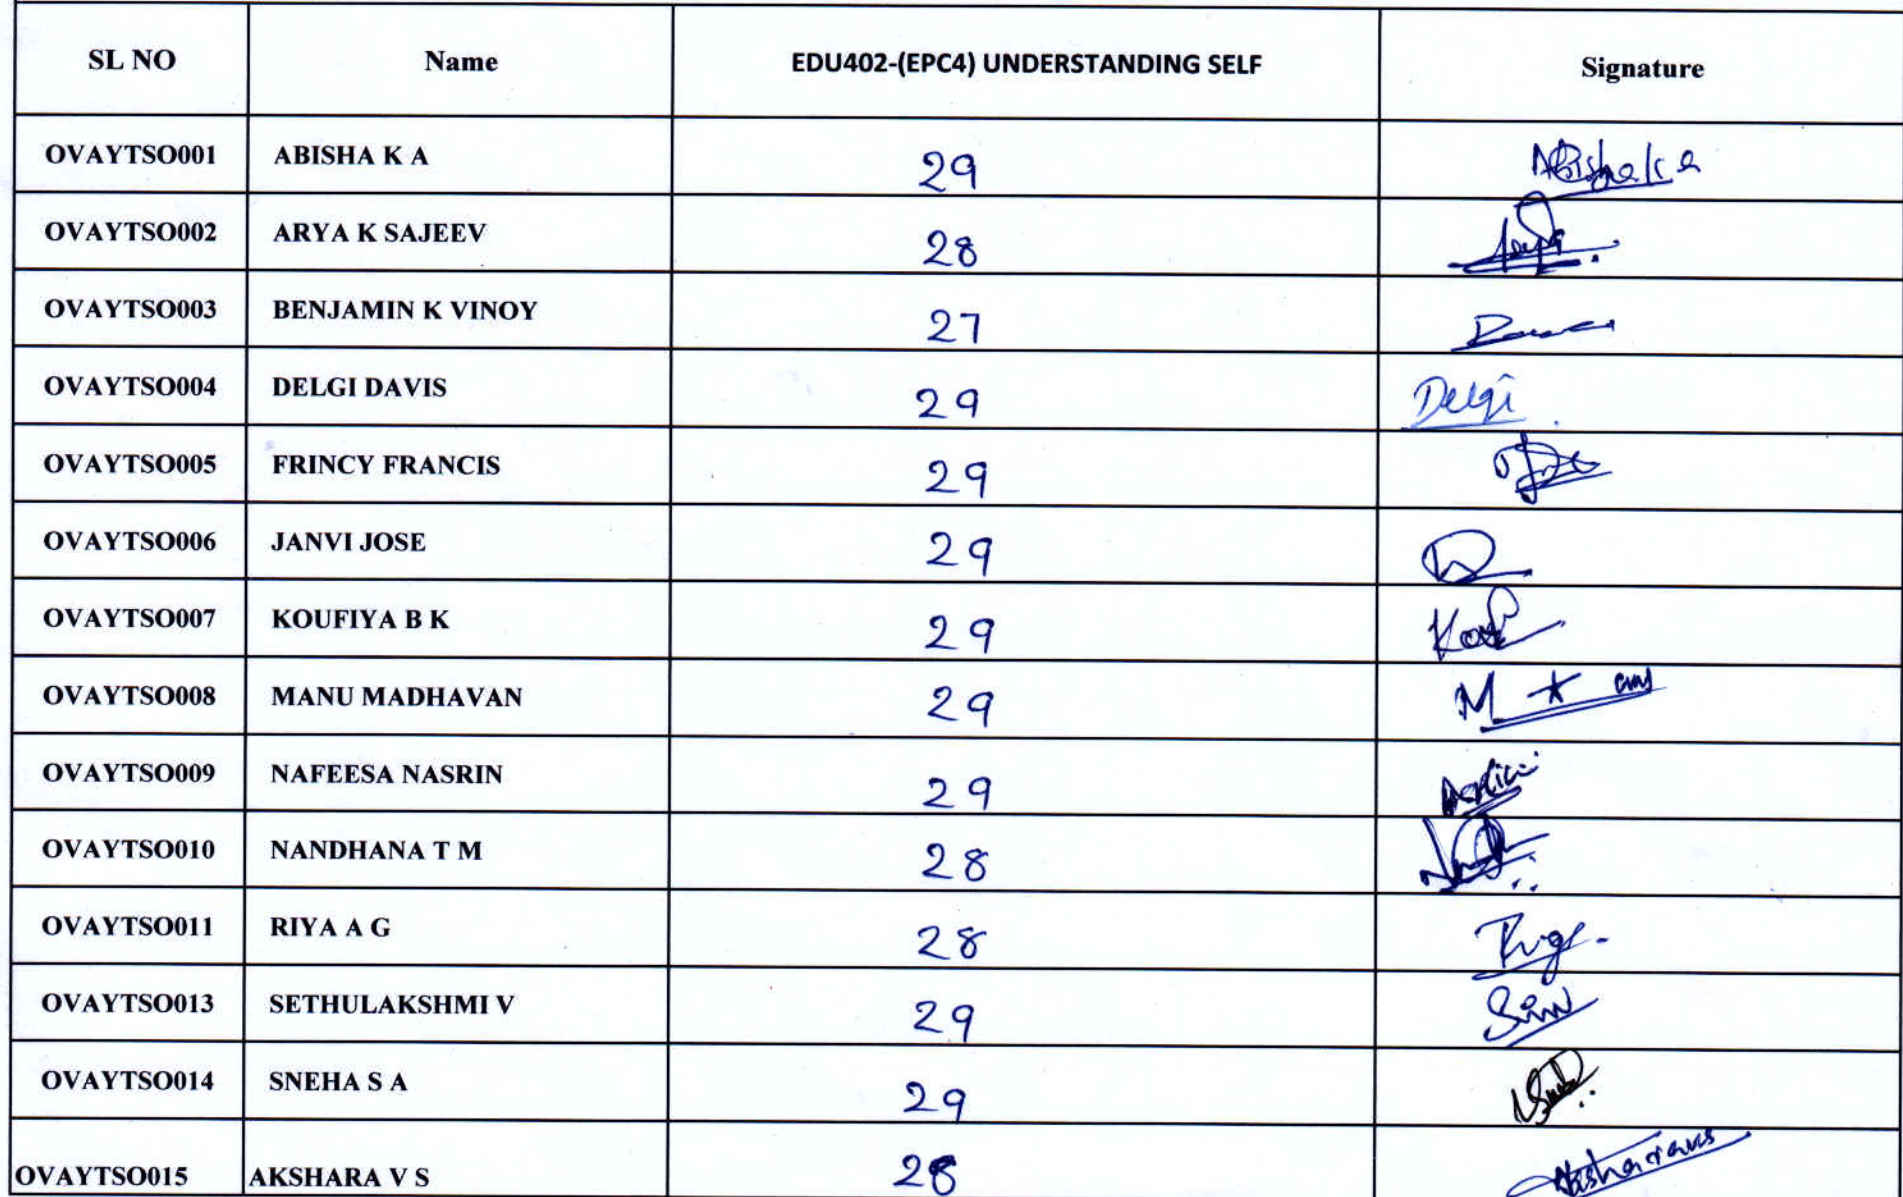 SL NO Name EDU402-(EPC4) UNDERSTANDING SELF Signature
OVAYTSO001 ABISHA K A 29 Abisha K a
OVAYTSO002 ARYA K SAJEEV 28
OVAYTSO003 BENJAMIN K VINOY 27
OVAYTSO004 DELGI DAVIS 29 Delgi
OVAYTSO005 FRINCY FRANCIS 29
OVAYTSO006 JANVI JOSE 29
OVAYTSO007 KOUFIYA B K 29
OVAYTSO008 MANU MADHAVAN 29
OVAYTSO009 NAFEESA NASRIN 29
OVAYTSO010 NANDHANA T M 28
OVAYTSO011 RIYA A G 28
OVAYTSO013 SETHULAKSHMI V 29
OVAYTSO014 SNEHA S A 29
OVAYTSO015 AKSHARA V S 28